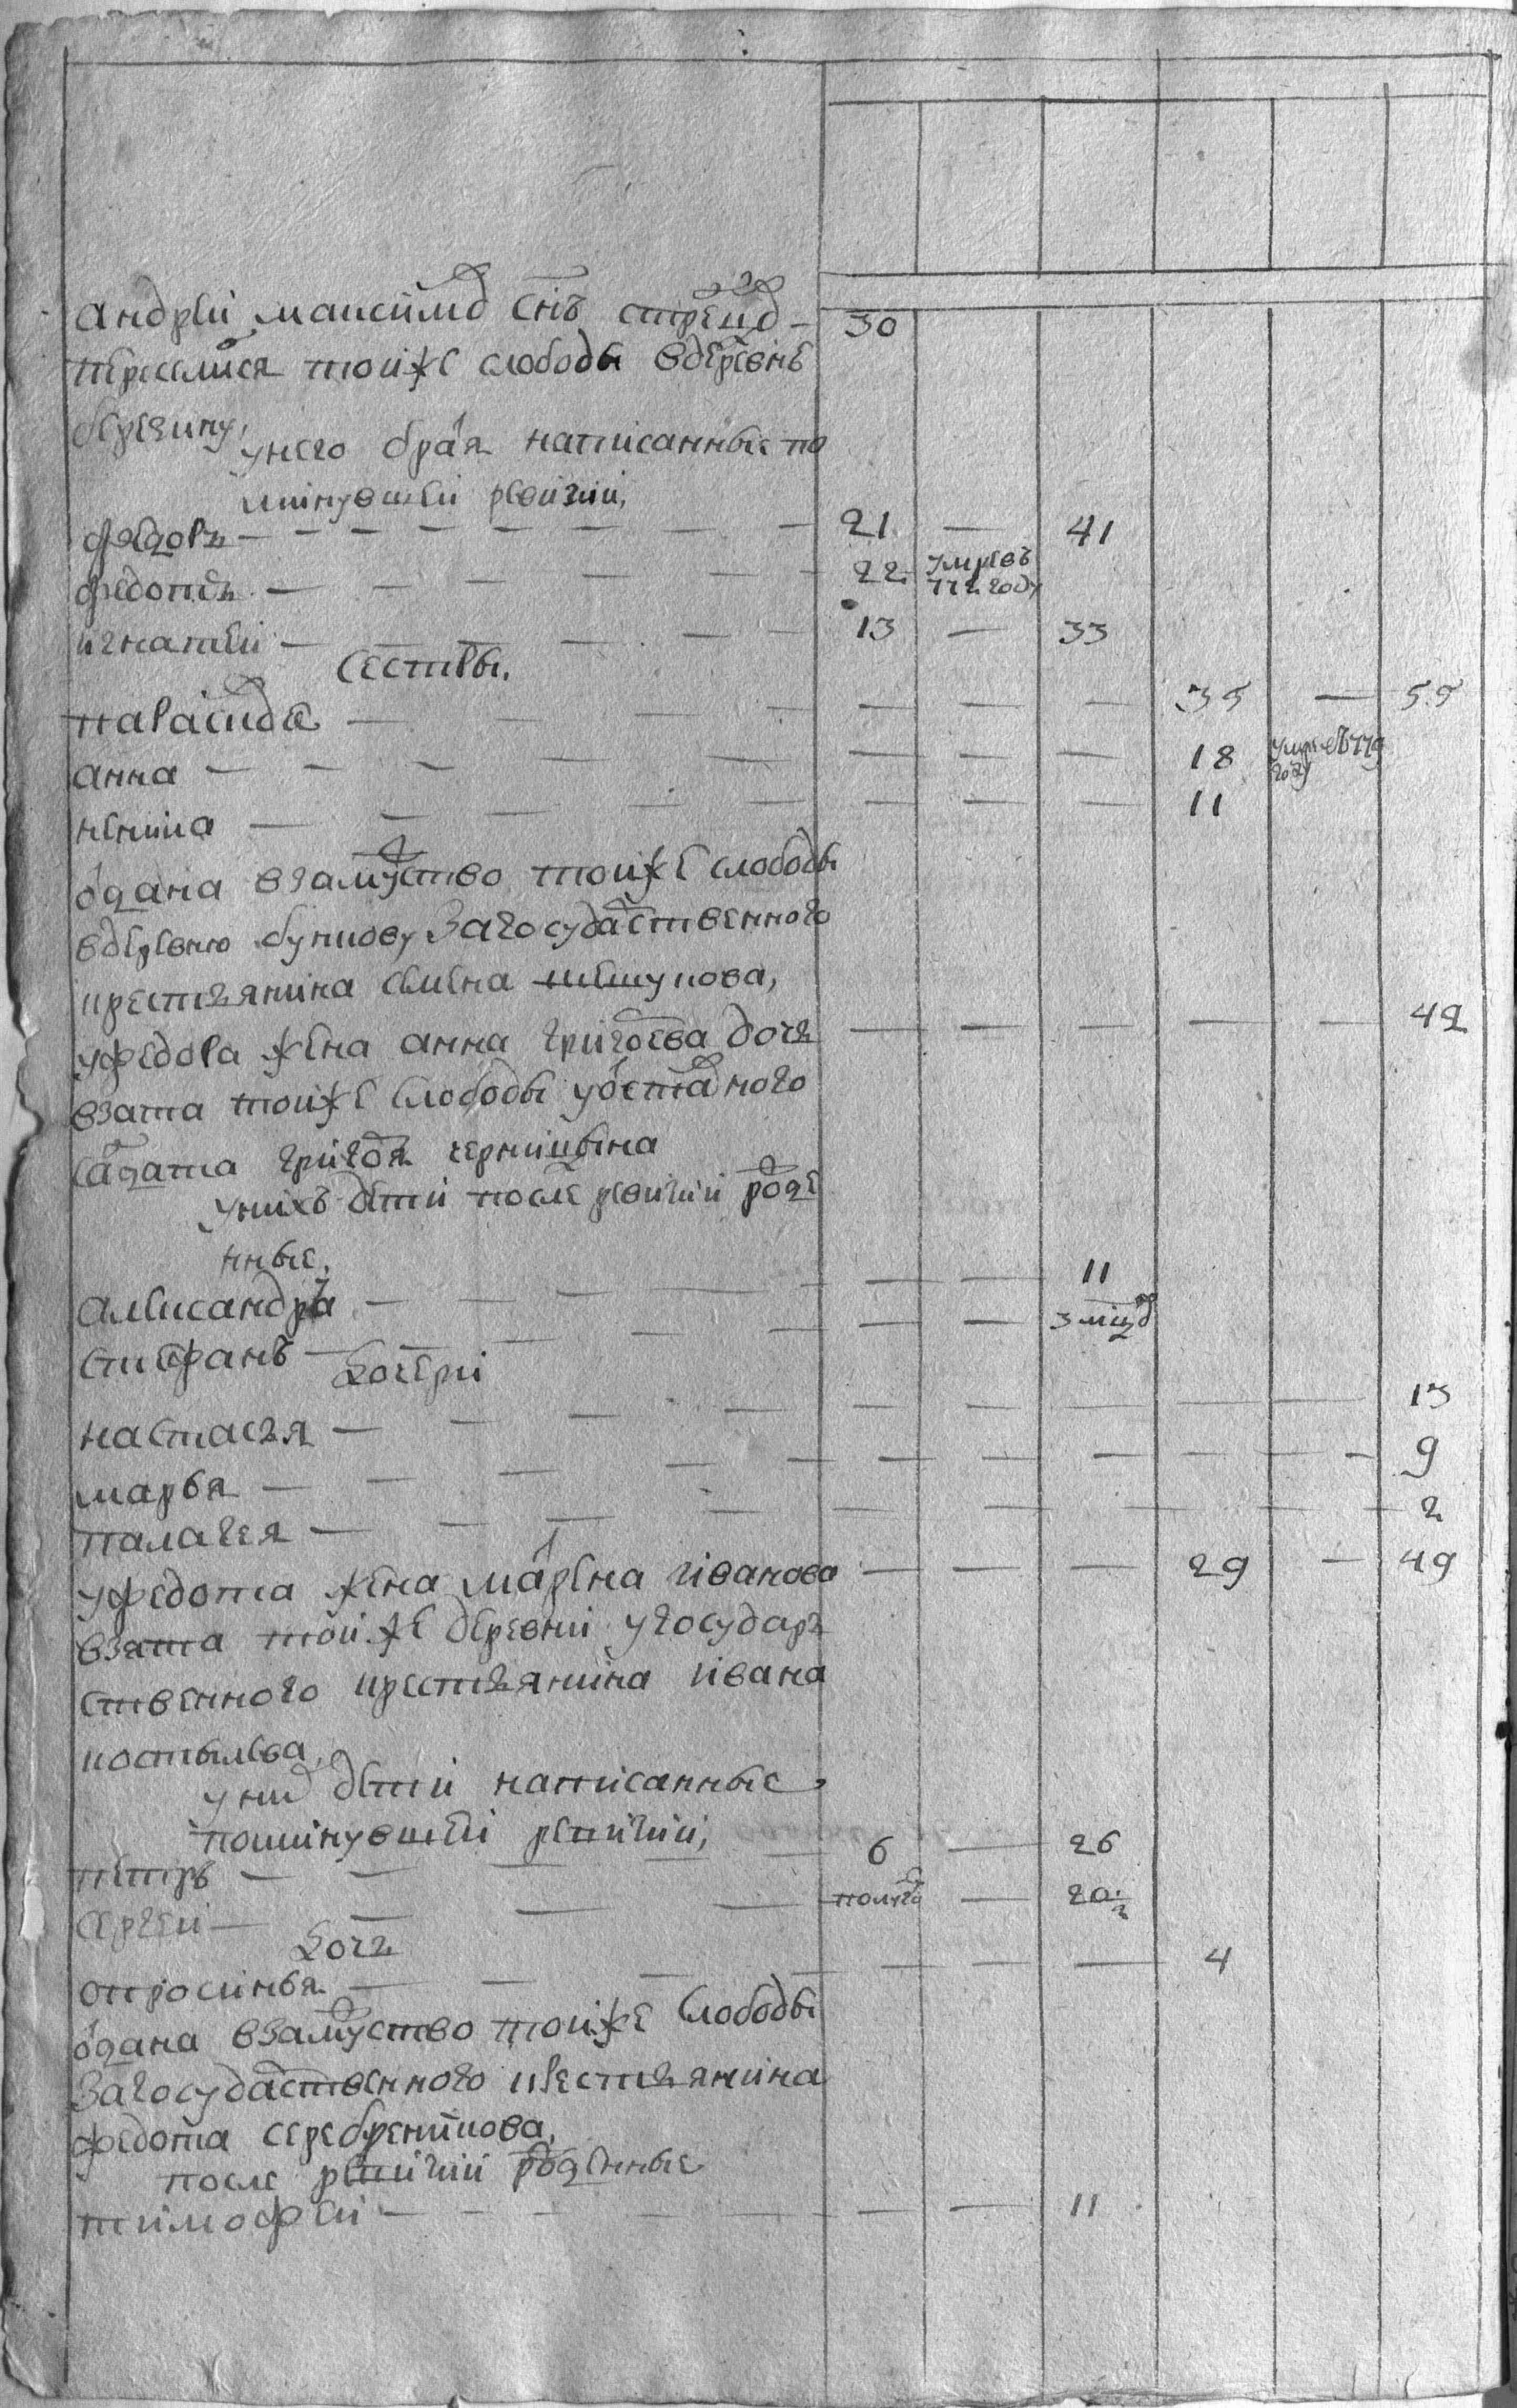 андреи максимов снъ 30
переселился тоиже слободы вдеревню
березину,
унего братья написанные по
минувшеи ревизии,
федоръ — 21 — 41
федотъ — 22 умре въ 772 году
игнатеи — 13 — 33
сестры.
парасковья — — — — 35 — 55
анна — — — — 18 умре въ 779 году
ксениа — — — — 11
отдана взамужство тоиже слободы
вдеревню бункову загосударственного
крестьянина
уфедора жена анна григорева дочь — — — — — 42
взята тоиже слободы уотставного
салдата григорья черницына
унихъ дети после ревизии рожде
нные,
александра — — — 11
стефанъ — — — 3 мцов
дочери
настасья — — — — — — 13
марья — — — — — — 9
палагея — — — — — — 2
уфедота жена марена иванова — — — 29 — 49
взята тоиже деревни угосудар
ственного крестьянина ивана
костылева,
уних дети написанные
поминувшеи ревизии,
петръ — 6 — 26
сергеи — полуго — 20 ½
дочь
опросинья — — — — 4
отдана взамужство тоиже слободы
загосударственного крестьянина
федота серебреникова,
после ревизии рожденные
тимофеи — — — 11